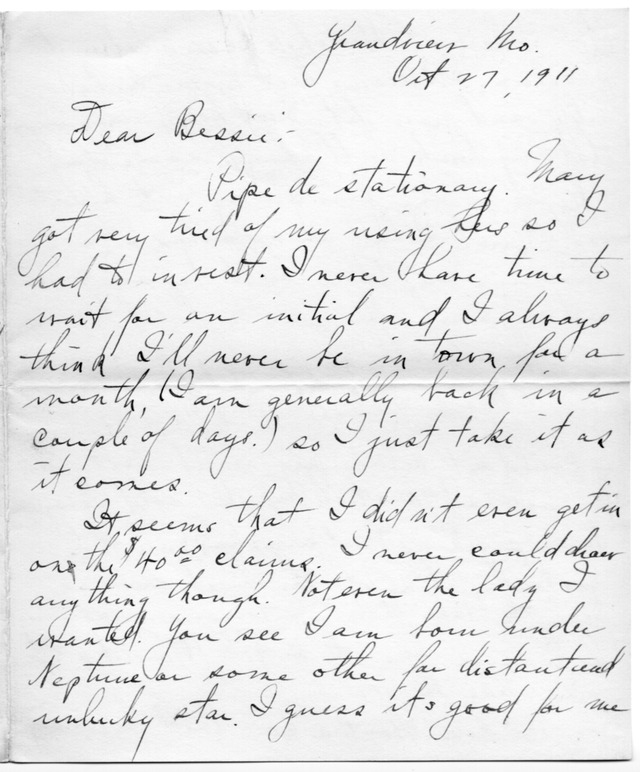 Grandview Mo.
Oct 27, 1911
Dear Bessie:-
Pipe de stationary. Mary
got very tired of my using hers so I
had to invest. I never have time to
wait for an initial and I always
think I'll never be in town for a
month, (I am generally back in a
couple of days.) so I just take it as
it comes.
It seems that I didn't even get in
on the $40 00 claims. I never could draw
anything though. Not even the lady I
wanted. You see I am born under
Neptune or some other far distant and
unlucky star. I guess its good for me